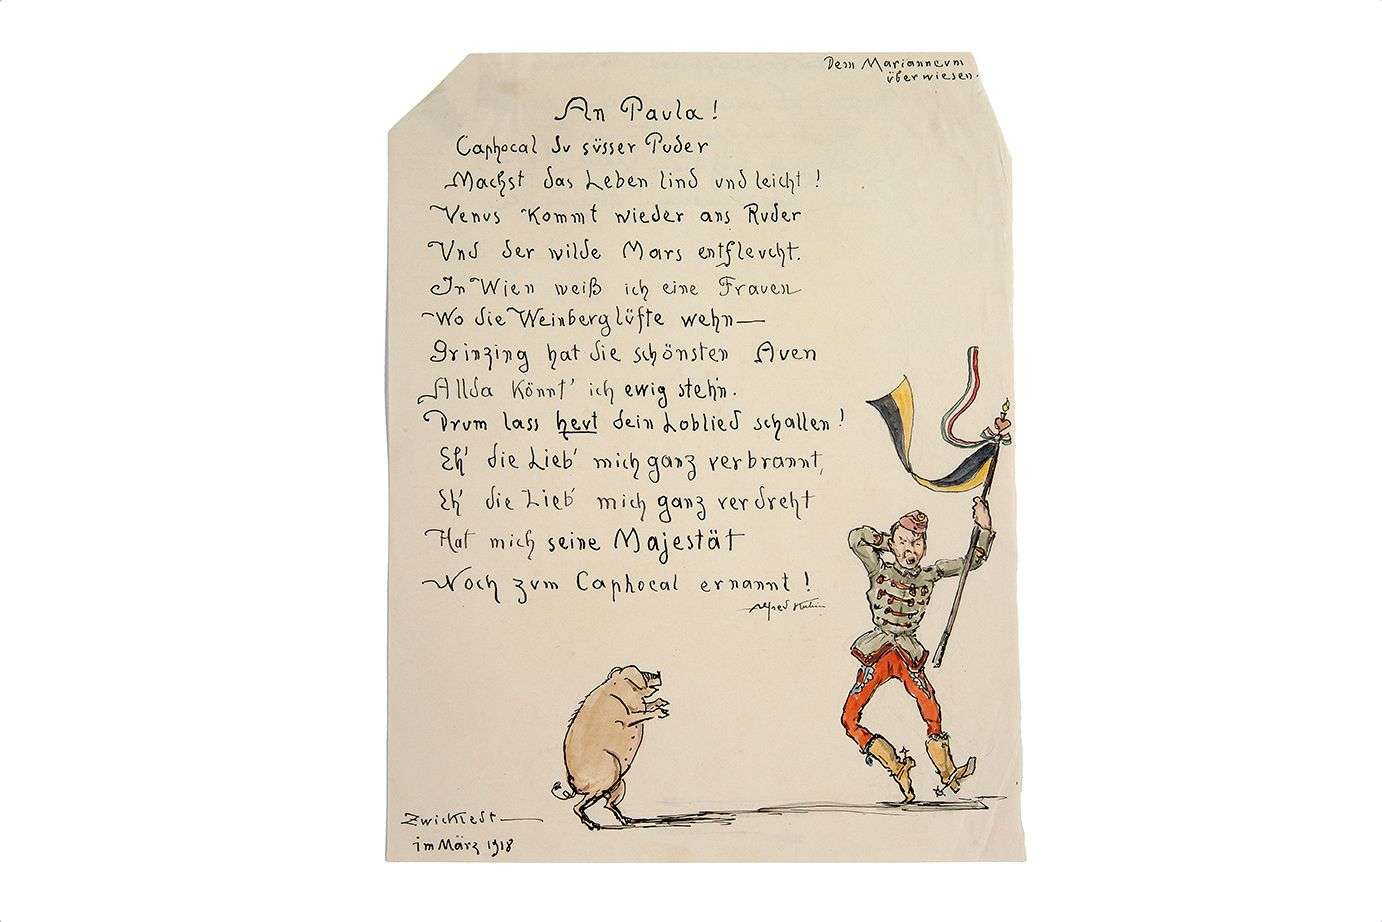 Dem Marianneum
überwiesen.
An Paula!
Caphocal du süsser Puder
Machst das Leben lind und leicht!
Venus kommt wieder ans Ruder
Und der wilde Mars entfleucht.
In Wien weiß ich eine Frauen
Wo die Weinberglüfte wehn—
Grinzing hat die schönsten Auen
Allda könnt' ich ewig steh'n.
Drum lass heut dein Loblied schallen!
Eh' die Lieb' mich ganz verbrannt,
Eh' die Lieb' mich ganz verdreht
Hat mich seine Majestät
Noch zum Caphocal ernannt!
Alfred Kubin
Zwickledt—
im März 1918